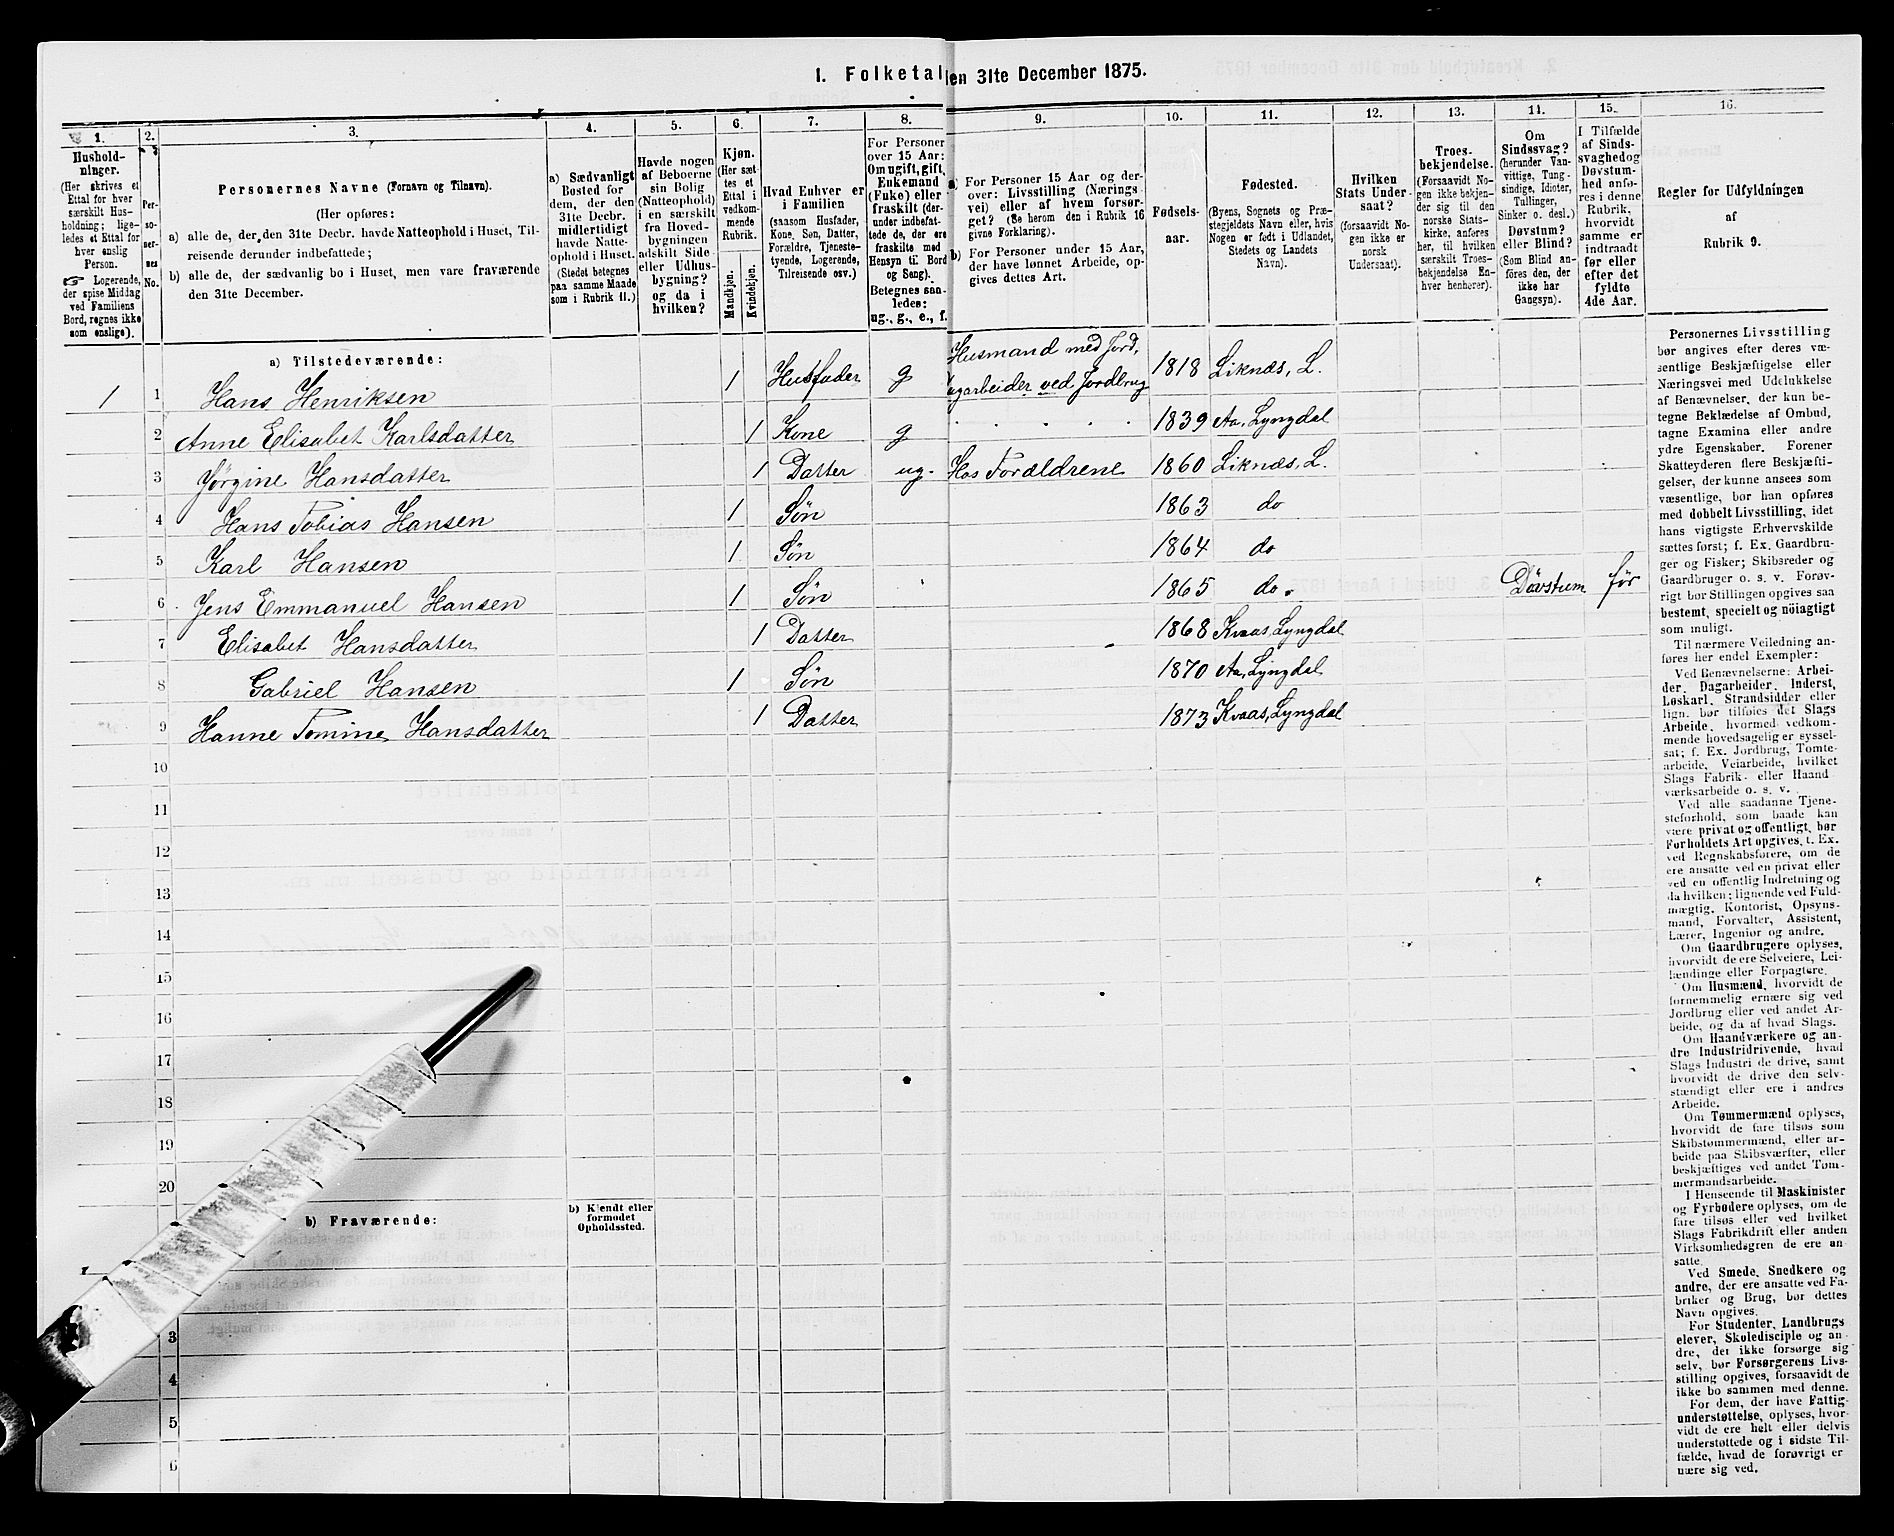 1. Folketal
en 31te December 1875.
1.
Hushold-
ninger.
(Her skrives et
Ettal for hver
særskilt Hus-
holdning; lige-
ledes et Ettal for
hver enslig
Person.
☞ Logerende,
der spise Middag
ved Familiens
Bord, regnes ikke
som enslige).
2.
Per-
so-
ner-
nes
No.
3.
Personernes Navne (Fornavn og Tilnavn).
(Her opføres:
a) alle de, der den 31te Decbr. havde Natteophold i Huset, Til-
reisende derunder indbefattede;
b) alle de, der sædvanlig bo i Huset, men vare fraværende
den 31te December.
4.
a) Sædvanligt
Bosted for
dem, der den
31te Decbr.
midlertidigt
havde Natte-
ophold i Huset.
(Stedet betegnes
paa samme Maade
som i Rubrik 11.)
5.
Havde nogen
af Beboerne
sin Bolig
(Natteophold)
i en særskilt
fra Hoved-
bygningen
adskilt Side-
eller Udhus-
bygning?
og da i
hvilken?
6.
Kjøn.
(Her sæt-
tes et
Ettal i
vedkom-
mende
Rubrik.
Mandkjøn.
Kvindekjøn.
7.
Hvad Enhver er
i Familien
(saasom Husfader,
Kone, Søn, Datter,
Forældre, Tjeneste-
tyende, Logerende,
Tilreisende osv.)
8.
For Personer
over 15 Aar:
Om ugift, gift,
Enkemand
(Enke) eller
fraskilt (der-
under indbefat-
tede de, der ere
fraskilte med
Hensyn til Bord
og Seng).
Betegnes saa-
ledes:
ug., g., e., f.
9.
a) For Personer 15 Aar og der-
over: Livsstilling (Nærings-
vei) eller af hvem forsør-
get? (Se herom den i Rubrik 16
givne Forklaring).
b) For Personer under 15 Aar,
der have lønnet Arbeide, op-
gives dettes Art.
10.
Fødsels-
aar.
11.
Fødested.
(Byens, Sognets og Præ-
stegjeldets Navn eller, hvis
Nogen er født i Udlandet,
Stedets og Landets
Navn).
12.
Hvilken
Stats Under-
saat?
(forsaavidt No-
gen ikke er
norsk
Undersaat).
13.
Troes-
bekjendelse.
(Forsaavidt No-
gen ikke bekjen-
der sig til den
norske Stats-
kirke, anføres
her, til hvilken
særskilt Troes-
bekjendelse En-
hver henhører).
14.
Om
Sindssvag?
(herunder Van-
vittige, Tung-
sindige, Idioter,
Tullinger,
Sinker o. desl.)
Døvstum?
eller Blind?
(Som Blind an-
føres den, der
ikke har
Gangsyn).
15.
I Tilfælde
af Sinds-
svaghedog
Døvstum-
hed anfø-
res i denne
Rubrik,
hvorvidt
samme er
indtraadt
før eller
efter det
fyldte
4de Aar.
16.
Regler for Udfyldningen
af
Rubrik 9.
a) Tilstedeværende:
1 1 Hans Henriksen 1 Husfader g Husmand med Jord,
agarbeider ved Jordbrug 1818 Liknæs, L.
2 Anne Elisabet Karlsdatter 1 Kone g 1839 Aa, Lyngdal
3 Jørgine Hansdatter 1 Datter ug. Hos Forældrene 1860 Liknæs, L.
4 Hans Tobias Hansen 1 Søn 1863 do
5 Karl Hansen 1 Søn 1864 do
6 Jens Emmanuel Hansen 1 Søn 1865 do. Dövstum för
7 Elisabet Hansdatter 1 Datter 1868 Kvaas, Lyngdal
8 Gabriel Hansen 1 Søn 1870 Aa, Lyngdal
9 Hanne Tomine Hansdatter 1 Datter 1873 Kvaas, Lyngdal
10
11
12
13
14
15
16
17
18
19
20
b) Fraværende:
b) Kjendt eller
formodet
Opholdssted.
3
4
5
6
Personernes Livsstilling
bør angives efter deres væ-
sentlige Beskjæftigelse eller
Næringsvei med Udelukkelse
af Benævnelser, der kun be-
tegne Beklædelse af Ombud,
tagne Examina eller andre
ydre Egenskaber. Forener
Skatteyderen flere Beskjæfti-
gelser, der kunne ansees som
væsentlige, bør han opføres
med dobbelt Livsstilling, idet
hans vigtigste Erhvervskilde
sættes først; f. Ex. Gaardbru-
ger og Fisker; Skibsreder og
Gaardbruger o. s. v. Forøv-
rigt bør Stillingen opgives saa
bestemt, specielt og nöiagtigt
som muligt.
Til nærmere Veiledning an-
føres her endel Exempler:
Ved Benævnelserne: Arbei-
der, Dagarbeider, Inderst,
Løskarl, Strandsidder eller
lign. bør tilføies det Slags
Arbeide, hvormed vedkom-
mende hovedsagelig er syssel-
sat; f. Ex. Jordbrug, Tomte-
arbeide, Veiarbeide, hvilket
Slags Fabrik- eller Haand
værksarbeide o. s. v.
Ved alle saadanne Tjene-
steforhold, som baade kan
være privat og offentligt, bør
Forholdets Art opgives, f. Ex.
ved Regnskabsførere, om de
ere ansatte ved en privat eller
ved en offentlig Indretning og
da hvilken; lignende ved Fuld-
mægtig, Kontorist, Opsyns-
mand, Forvalter, Assistent,
Lærer, Ingeniør og andre.
Om Gaardbrugere oplyses,
hvorvidt de ere Selveiere, Lei-
lændinge eller Forpagtere.
Om Husmænd, hvorvidt de
fornemmelig ernære sig ved
Jordbrug eller ved andet Ar-
beide, og da af hvad Slags.
Om Haandværkere og an-
dre Industridrivende, hvad
Slags Industri de drive, samt
hvorvidt de drive den selv-
stændigt eller ere i andres
Arbeide.
Om Tømmermænd oplyses,
hvorvidt de fare tilsøs som
Skibstømmermænd, eller ar-
beide paa Skibsværfter, eller
beskjæftiges ved andet Tøm-
mermandsarbeide.
I Henseende til Maskinister
og Fyrbødere oplyses, om de
fare tilsøs eller ved hvilket
Slags Fabrikdrift eller anden
Virksomhedsgren de ere an-
satte.
Ved Smede, Snedkere og
andre, der ere ansatte ved Fa-
briker og Brug, bør dettes
Navn opgives.
For Studenter, Landbrugs
elever, Skoledisciple og an-
dre, det ikke forsørge sig
selv, bør Forsørgerens Livs-
stilling opgives, forsaavidt de
ikke bo sammen med denne.
For dem, der have Fattig-
understøttelse, oplyses, hvor-
vidt de ere helt eller delvis
understøttede og i sidste Til-
fælde, hvad de forøvrigt er
nære sig ved.